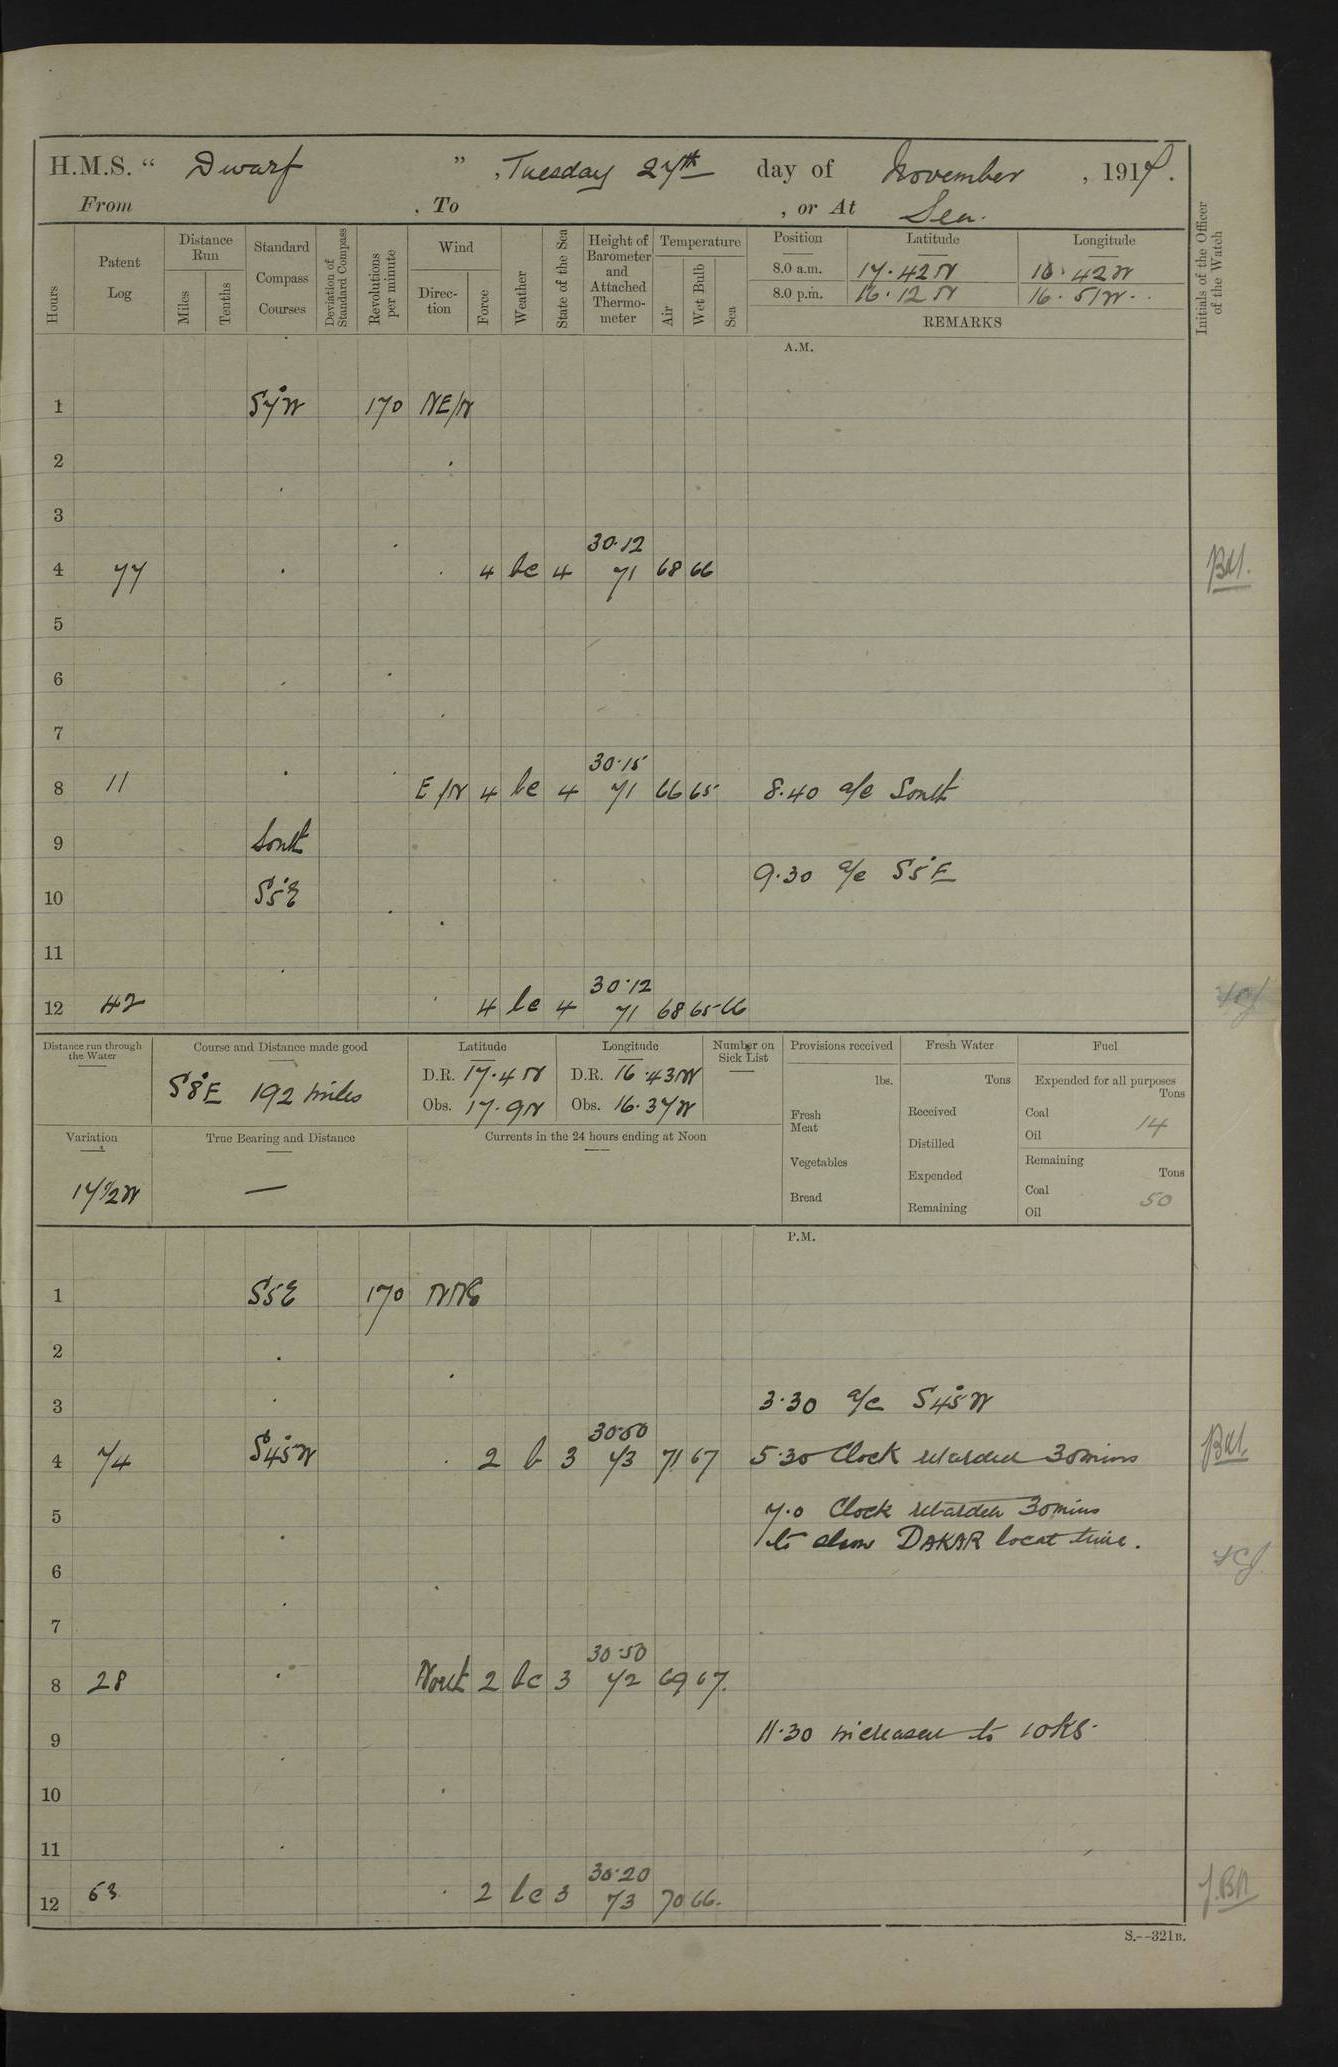 H.M.S. " Dwarf ", Tuesday 27th day of November, 1917.
From , To , or At Sea.
Hours
Patent Log
Distance Run
Miles
Tenths
Standard Compass Courses
Deviation of Standard Compass
Revolutions per minute
Wind
Direction
Force
Weather
State of the Sea
Height of Barometer and Attached Thermometer
Temperature
Air
Wet Bulb
Sea
Position Latitude Longitude
8.0 a.m. 17.42 N 16.42 W
8.0 p.m. 16.12 N 16.51 W.
REMARKS
Initials of the Officer of the Watch
A.M.
1 S7°W 170 NE/N
2
3
30.12
4 77 4 bc 4 71 68 66
5
6
7
30.15
8 11 E/N 4 bc 4 71 66 65 8.40 a/c South
9 South
9.30 a/c S5°E
10 S5°E
11
30.12
12 42 4 bc 4 71 68 65 66
Distance run through the Water
Course and Distance made good
S8°E 192 miles
Latitude
D.R. 17.4 N
Obs. 17.9 N
Longitude
D.R. 16.43 W
Obs. 16.37 W
Number on Sick List
Provisions received
lbs.
Fresh Meat
Vegetables
Bread
Fresh Water
Tons
Received
Distilled
Expended
Remaining
Fuel
Expended for all purposes
Tons
Coal 14
Oil
Remaining
Tons
Coal 50
Oil
Variation
17½ W
True Bearing and Distance
—
Currents in the 24 hours ending at Noon
P.M.
1 S5E 170 NNE
2
3 3.30 a/c S45°W
30.50
4 74 S45°W 2 b 3 73 71 67 5.30 Clock retarded 30 mins
5 7.0 Clock retarded 30 mins
to show DAKAR local time.
6
7
30.50
8 28 North 2 bc 3 72 69 67.
9 11.30 increased to 10 Ks.
10
11
30.20
12 63 2 bc 3 73 70 66.
S.--321B.